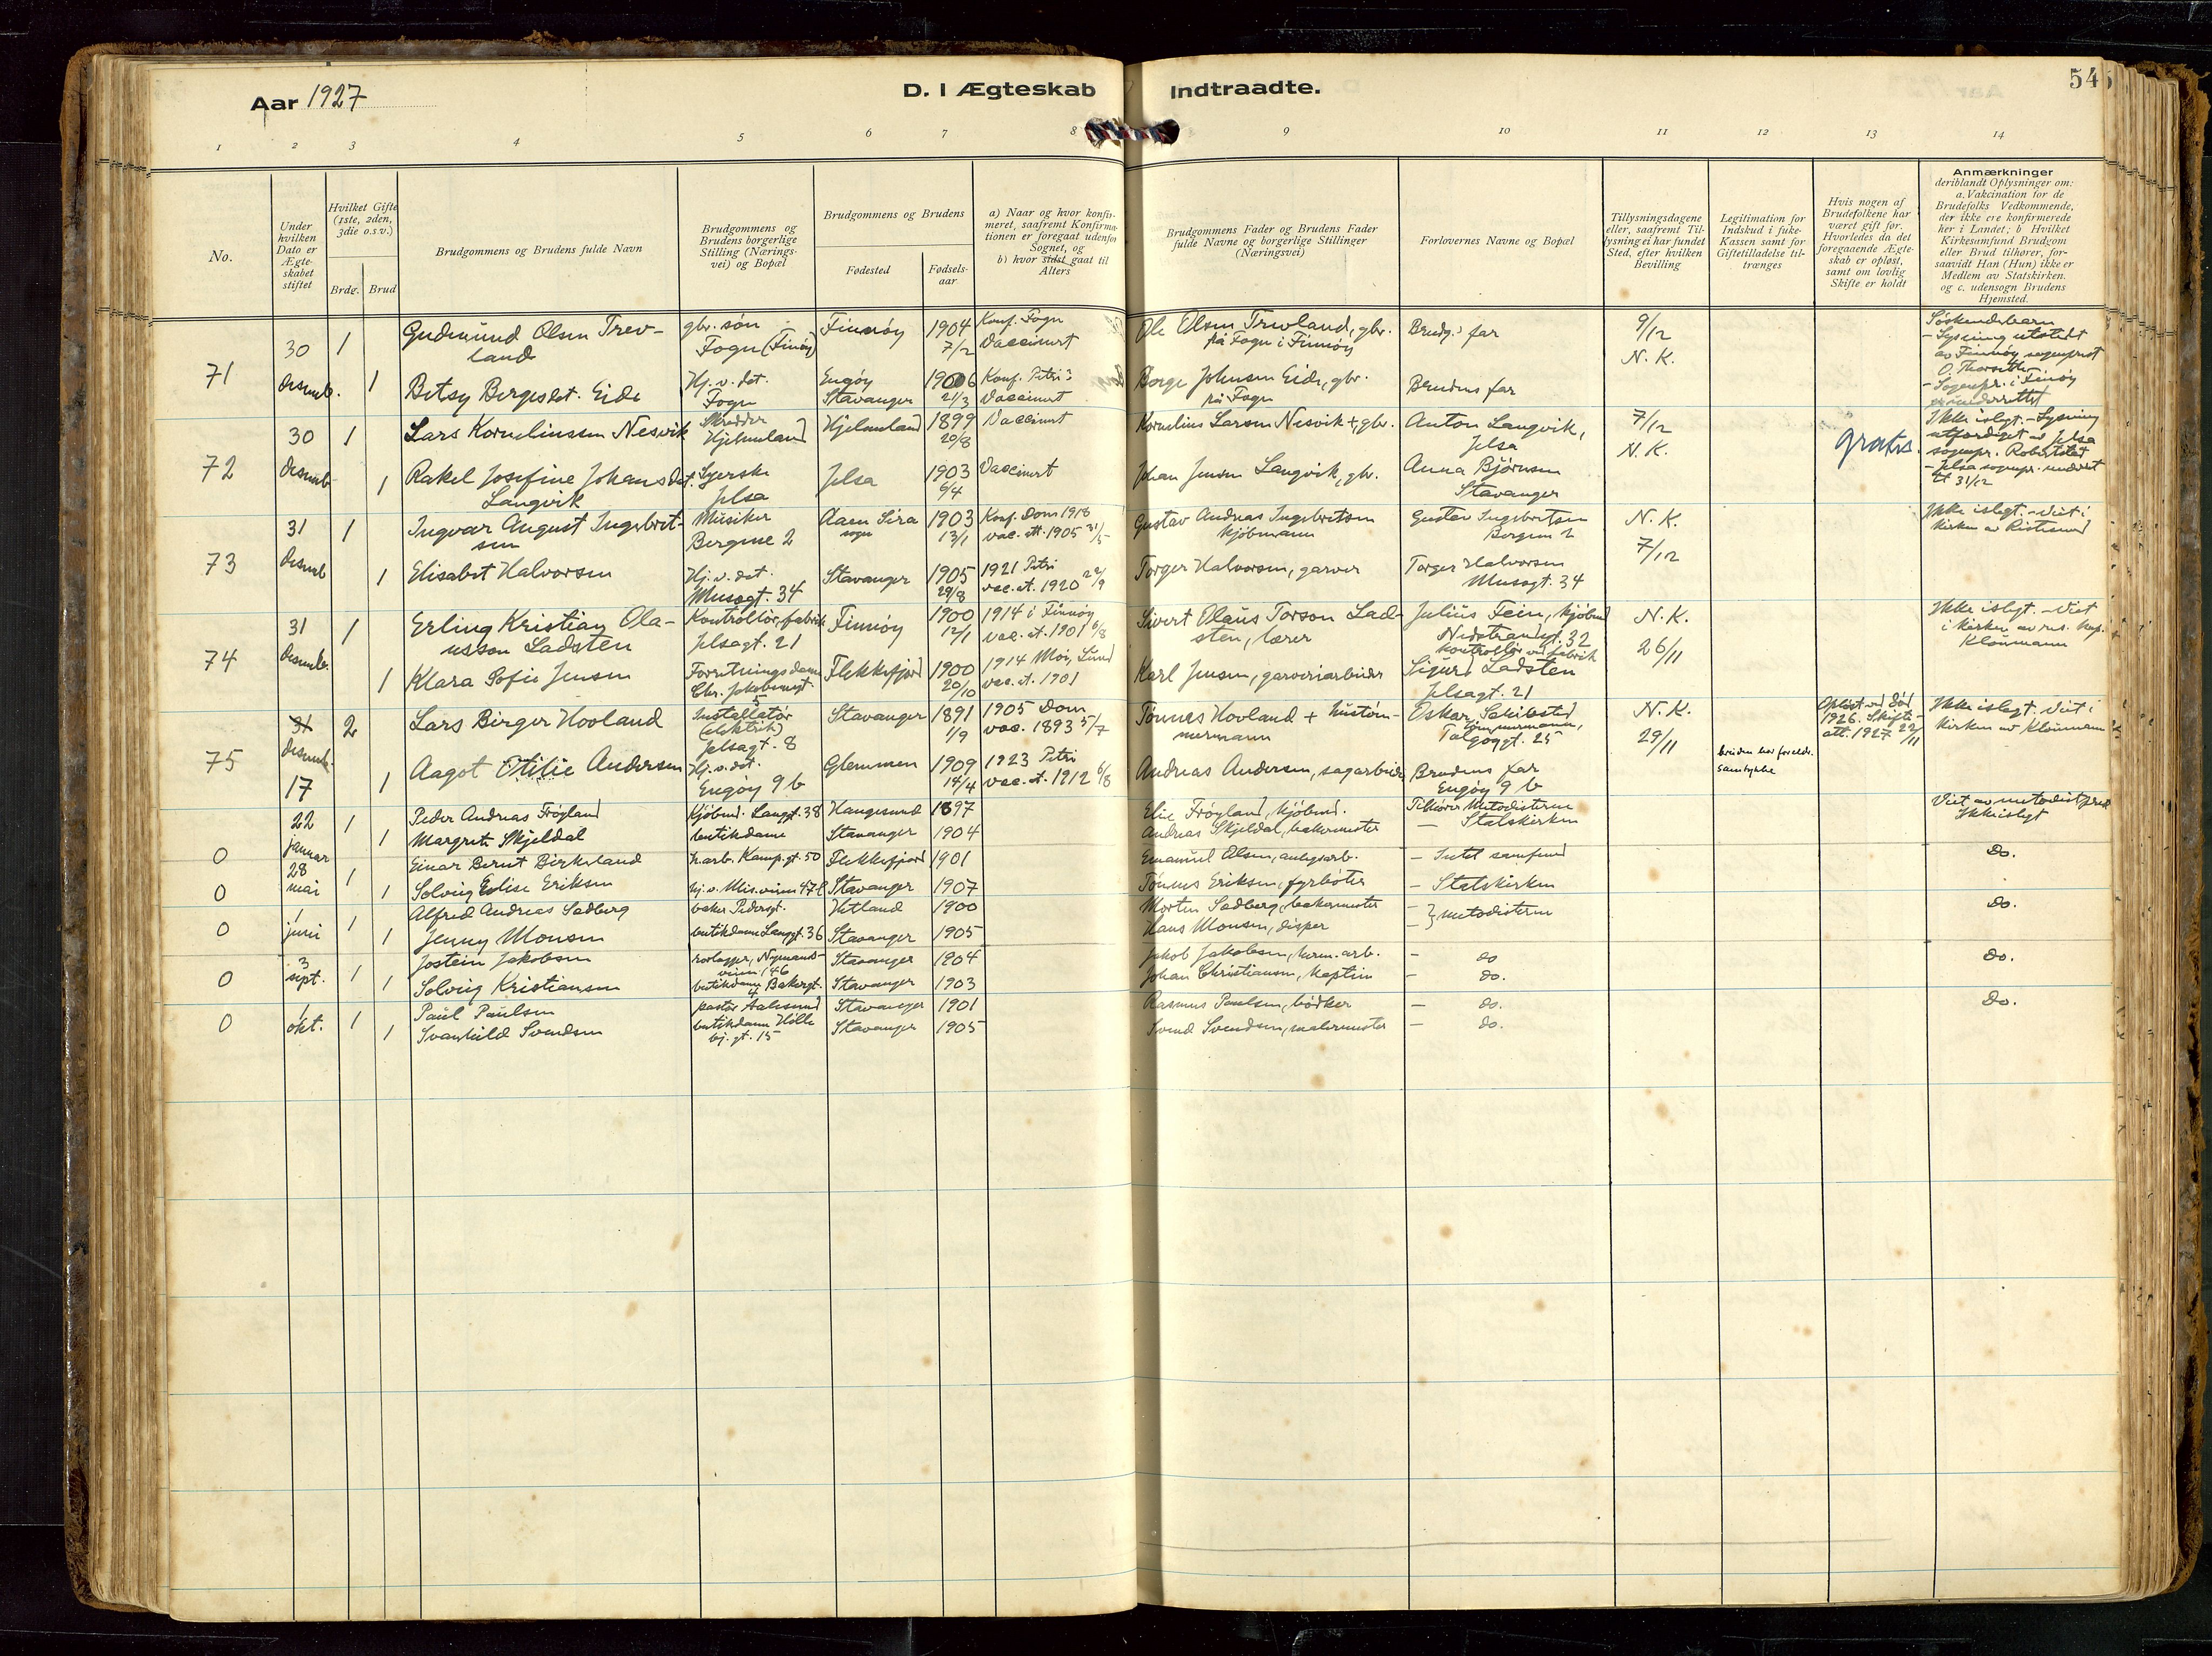 Aar 1927
D. I Ægteskab
Indtraadte.
545
1 2 3 4 5 6 7 8 9 10 11 12 13 14
No.
Under hvilken Dato er Ægteskabet stiftet
Hvilket Gifte (1ste, 2den, 3die o.s.v.)
Brdg.
Brud
Brudgommens og Brudens fulde Navn
Brudgommens og Brudens borgerlige Stilling (Næringsvei) og Bopæl
Brudgommens og Brudens
Fødested
Fødselsaar
a) Naar og hvor konfirmeret, saafremt Konfirmationen er foregaat udenfor Sognet, og
b) hvor sidst gaat til Alters
Brudgommens Fader og Brudens Fader fulde Navne og borgerlige Stillinger (Næringsvei)
Forlovernes Navne og Bopæl
Tillysningsdagene eller, saafremt Tillysning ei har fundet Sted, efter hvilken Bevilling
Legitimation for Indskud i fuke-Kassen samt for Giftetilladelse tiltrænges
Hvis nogen af Brudefolkene har været gift før. Hvorledes da det foregaaende Ægteskab er opløst, samt om lovlig Skifte er holdt
Anmærkninger
deriblandt Oplysninger om: a. Vakcination for de Brudefolks Vedkommende, der ikke ere konfirmerede her i Landet; b Hvilket Kirkesamfund Brudgom eller Brud tilhører, forsaavidt Han (Hun) ikke er Medlem av Statskirken. og c. udensogn Brudens Hjemsted.
71 30 desemb. 1 Gudmund Olsen Trevland gbr. søn Fogn (Finøy) Finnøy 1904 7/2 Konf. Fogn Vaccinert Ole Olsen Trevland, gbr. på Fogn i Finnøy Brudg.s far 9/12 N. K. Søskendebarn - Lysning utstedt av Finnøy sogneprest O. Thorsetth - Sognepr. i Finøy
1 Betsy Bergesdt. Eide Hj. v. det. Fogn Engøy Stavanger 1906 21/3 Konf. Petri Vaccinert Børge Johnsen Eide, gbr. på Fogn Brudens far
72 30 desemb 1 Lars Korneliussen Nesvik Skredder Hjelmeland Hjelmeland 1899 20/8 Vaccinert Kornelius Larsen Nesvik +, gbr. Anton Langvik, Jelsa 7/12 N. K. gratis. Ikke i slegt. - Lysning utfærdiget av Jelsa sognepr. Robertstad - Jelsa sognepr. underet tt 31/12
1 Rakel Josefine Johansdt. Langvik Syerske Jelsa Jelsa 1903 6/4 Vaccinert Johan Jensen Langvik, gbr. Anna Bjørnsen Stavanger
73 31 desemb 1 Ingvar August Ingebretsen Musiker Bergene 2 Aaen Sira sogn 1903 13/1 Konf. Dom 1918 vac. att. 1905 31/5 Gustav Andreas Ingebretsen kjøbmann Gustav Ingebretsen Bergene 2 N. K. 7/12 Ikke i slegt. - Viet i kirken av Ristesund
1 Elisabet Halvorsen Hj. v. det. Musegt. 34 Stavanger 1905 29/8 1921 Petri vac. at. 1920 22/9 Torger Halvorsen, garver Torger Halvorsen Musegt. 34
74 31 desemb. 1 Erling Kristian Olausson Ladsten Kontrollør, fabrik Jelsagt. 21 Finnøy 1900 12/1 1914 i Finnøy vac. at. 1901 6/8 Sivert Olaus Torson Ladsten, lærer Julius Fein, kjøbmd Nedstrandsgt. 32 N. K. 26/11 Ikke i slegt. - Viet i kirken av res. kap. Kloumann
1 Klara Sofie Jensen Forretningsdame Chr. Jakobsensgt. 5 Flekkefjord 1900 20/10 1914 Moi, Lund vac. at. 1901 Karl Jensen, garveriarbeider kontrollør ved fabrik Sigurd Ladsten Jelsagt. 21
75 31 desemb. 17 2 Lars Birger Hovland Installatør (elektrik) Jelsagt. 8 Stavanger 1891 1/9 1905 Dom vac. 1893 5/7 Tønnes Hovland + hustømmermann Oskar Schibsted tømmermann, Talgøygt. 25 N. K. 29/11 bruden har foreldr. samtykke Opløst ved død 1926. Skifteatt. 1927 22/11 Ikke i slegt. Viet i kirken av Kloumann
1 Aagot Otilie Andersen Hj. v. det. Engøy 9 b Glemmen 1909 14/4 1923 Petri vac. at. 1912 6/8 Andreas Andersen, sagarbeider Brudens far Engøy 9 b
0 22 januar 1 Peder Andreas Frøyland Kjøbmd. Langgt. 38 Haugesund 1897 Elie Frøyland, kjøbmd. Tilhører Metodisterne Viet av metodistpred. Ikke i slegt
1 Margrete Skjeldal butikdame Stavanger 1904 Andreas Skjeldal, bakermester — Statskirken
0 28 mai 1 Einar Bernt Birkeland h.arb. Kamp.gt. 50 Flekkefjord 1901 Emanuel Olsen, anlegsarb. — Intet samfund Do.
1 Solveig Elise Eriksen hj. v. Mis.veien 47b Stavanger 1907 Tønnes Eriksen, fyrbøter — Statskirken
0 1 juni 1 Alfred Andreas Sadberg baker Pedersgt. Hetland 1900 Morten Sadberg, bakermester — } metodisterne Do.
1 Jenny Monsen butikdame Langgt. 36 Stavanger 1905 Hans Monsen, disper —
0 3 sept. 1 Jostein Jakobsen rørlægger, Nymandsveien 146 Stavanger 1904 Jakob Jakobsen, herm.arb. — do Do.
1 Solveig Kristiansen butikdame Bakergt. 4 Stavanger 1903 Johan Christiansen, kaptein — do.
0 1 okt. 1 Paul Paulsen pastor Aalesund Stavanger 1901 Rasmus Paulsen, bødker — do. Do.
1 Svanhild Svendsen butikdame Hillebj. gt. 15 Stavanger 1905 Svend Svendsen, malermester — do.